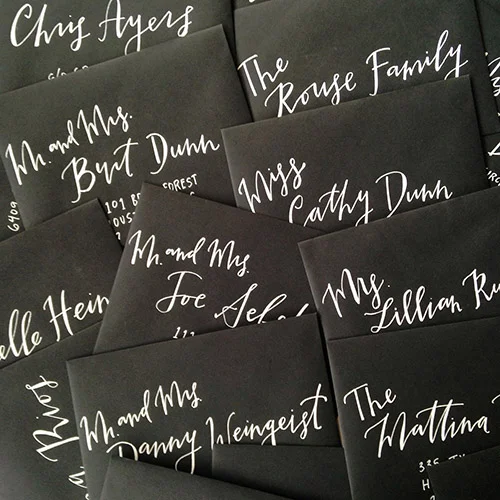 Chris Ayers
The
Rouse Family
Mr. and Mrs.
Burt Dunn
101
FOREST
6409
Miss
Cathy Dunn
Mr. and Mrs.
Joe
Mrs.
Lillian Ru
elle Hein
Rios
Mr. and Mrs.
Danny Weingeist
The
Mattina